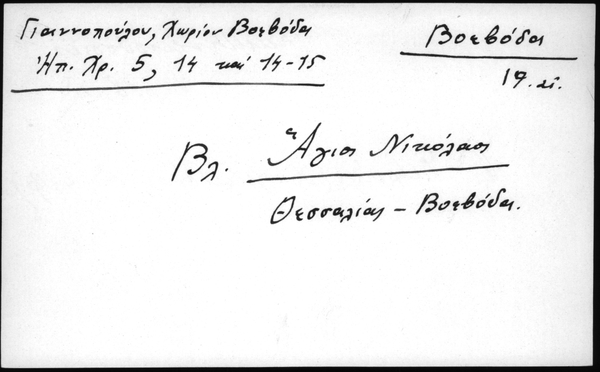 Γιαννοπούλου, Χωρίον Βοεβόδα
Ἠπ. Χρ. 5, 14 καὶ 14-15
Βοεβόδα
19. αἰ.
Βλ. Ἅγιος Νικόλαος
Θεσσαλίας - Βοεβόδα.